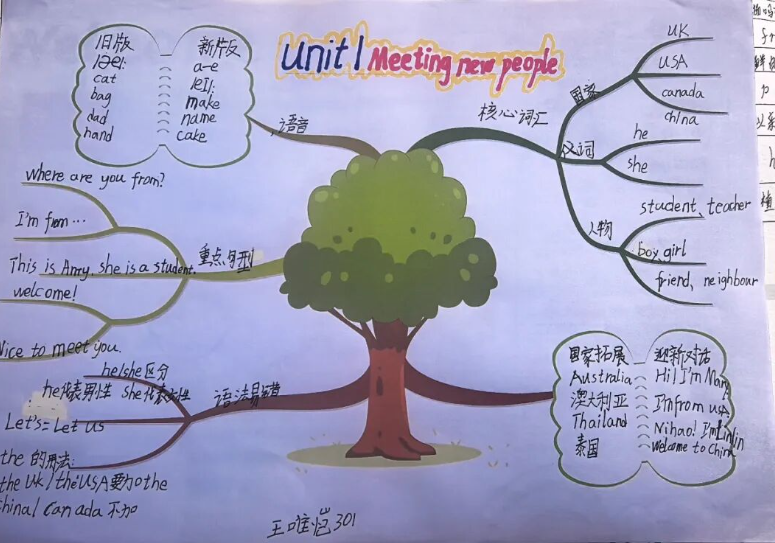 unit 1 Meeting new people
旧版
/æ/:
cat
bag
dad
hand
新版
a-e
/eɪ/:
make
name
cake
语音
核心词汇
国家
UK
USA
canada
china
he
she
人物
student、teacher
boy、girl
friend、neighbour
重点句型
where are you from?
I'm from…
This is Amy. she is a student.
welcome!
Nice to meet you.
语法易错
he/she区分
he代表男性 she代表女性
Let's=Let us
the 的用法:
the UK/the USA要加the
china/canada 不加
国家拓展
Australia
澳大利亚
Thailand
泰国
迎新对话
Hi! I'm
I'm from USA
Nihao! I'm Linlin
Welcome to China
王唯恺301